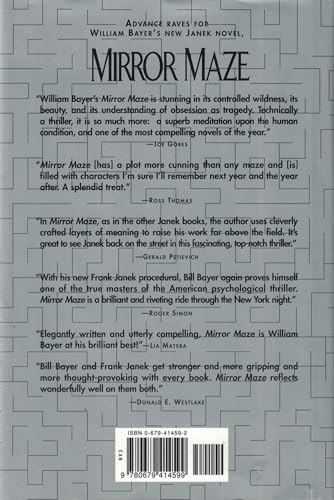 ADVANCE RAVES FOR
WILLIAM BAYER'S NEW JANEK NOVEL,
MIRROR MAZE
"William Bayer's Mirror Maze is stunning in its controlled wildness, its
beauty, and its understanding of obsession as tragedy. Technically
a thriller, it is so much more: a superb meditation upon the human
condition, and one of the most compelling novels of the year."
—JOE GORES
"Mirror Maze [has] a plot more cunning than any maze and [is]
filled with characters I'm sure I'll remember next year and the year
after. A splendid treat."
—ROSS THOMAS
"In Mirror Maze, as in the other Janek books, the author uses cleverly
crafted layers of meaning to raise his work far above the field. It's
great to see Janek back on the street in this fascinating, top-notch thriller."
—GERALD PETIEVICH
"With his new Frank Janek procedural, Bill Bayer again proves himself
one of the true masters of the American psychological thriller.
Mirror Maze is a brilliant and riveting ride through the New York night."
—ROGER SIMON
"Elegantly written and utterly compelling, Mirror Maze is William
Bayer at his brilliant best!"—LIA MATERA
"Bill Bayer and Frank Janek get stronger and more gripping and
more thought-provoking with every book. Mirror Maze reflects
wonderfully well on them both."
—DONALD E. WESTLAKE
ISBN 0-679-41459-2
EAN
9 780679 414599